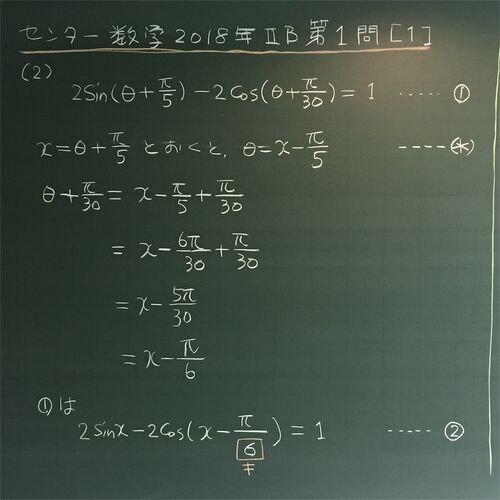 センター数学2018年ⅡB第1問[1]
(2)
2Sin(θ+π/5)-2Cos(θ+π/30)=1 ‥‥‥ ①
x=θ+π/5 とおくと, θ=x-π/5 ---- (*)
θ+π/30= x-π/5+π/30
= x-6π/30+π/30
=x-5π/30
=x-π/6
①は
2Sinx-2Cos(x-π/6)=1 ----- ②
キ